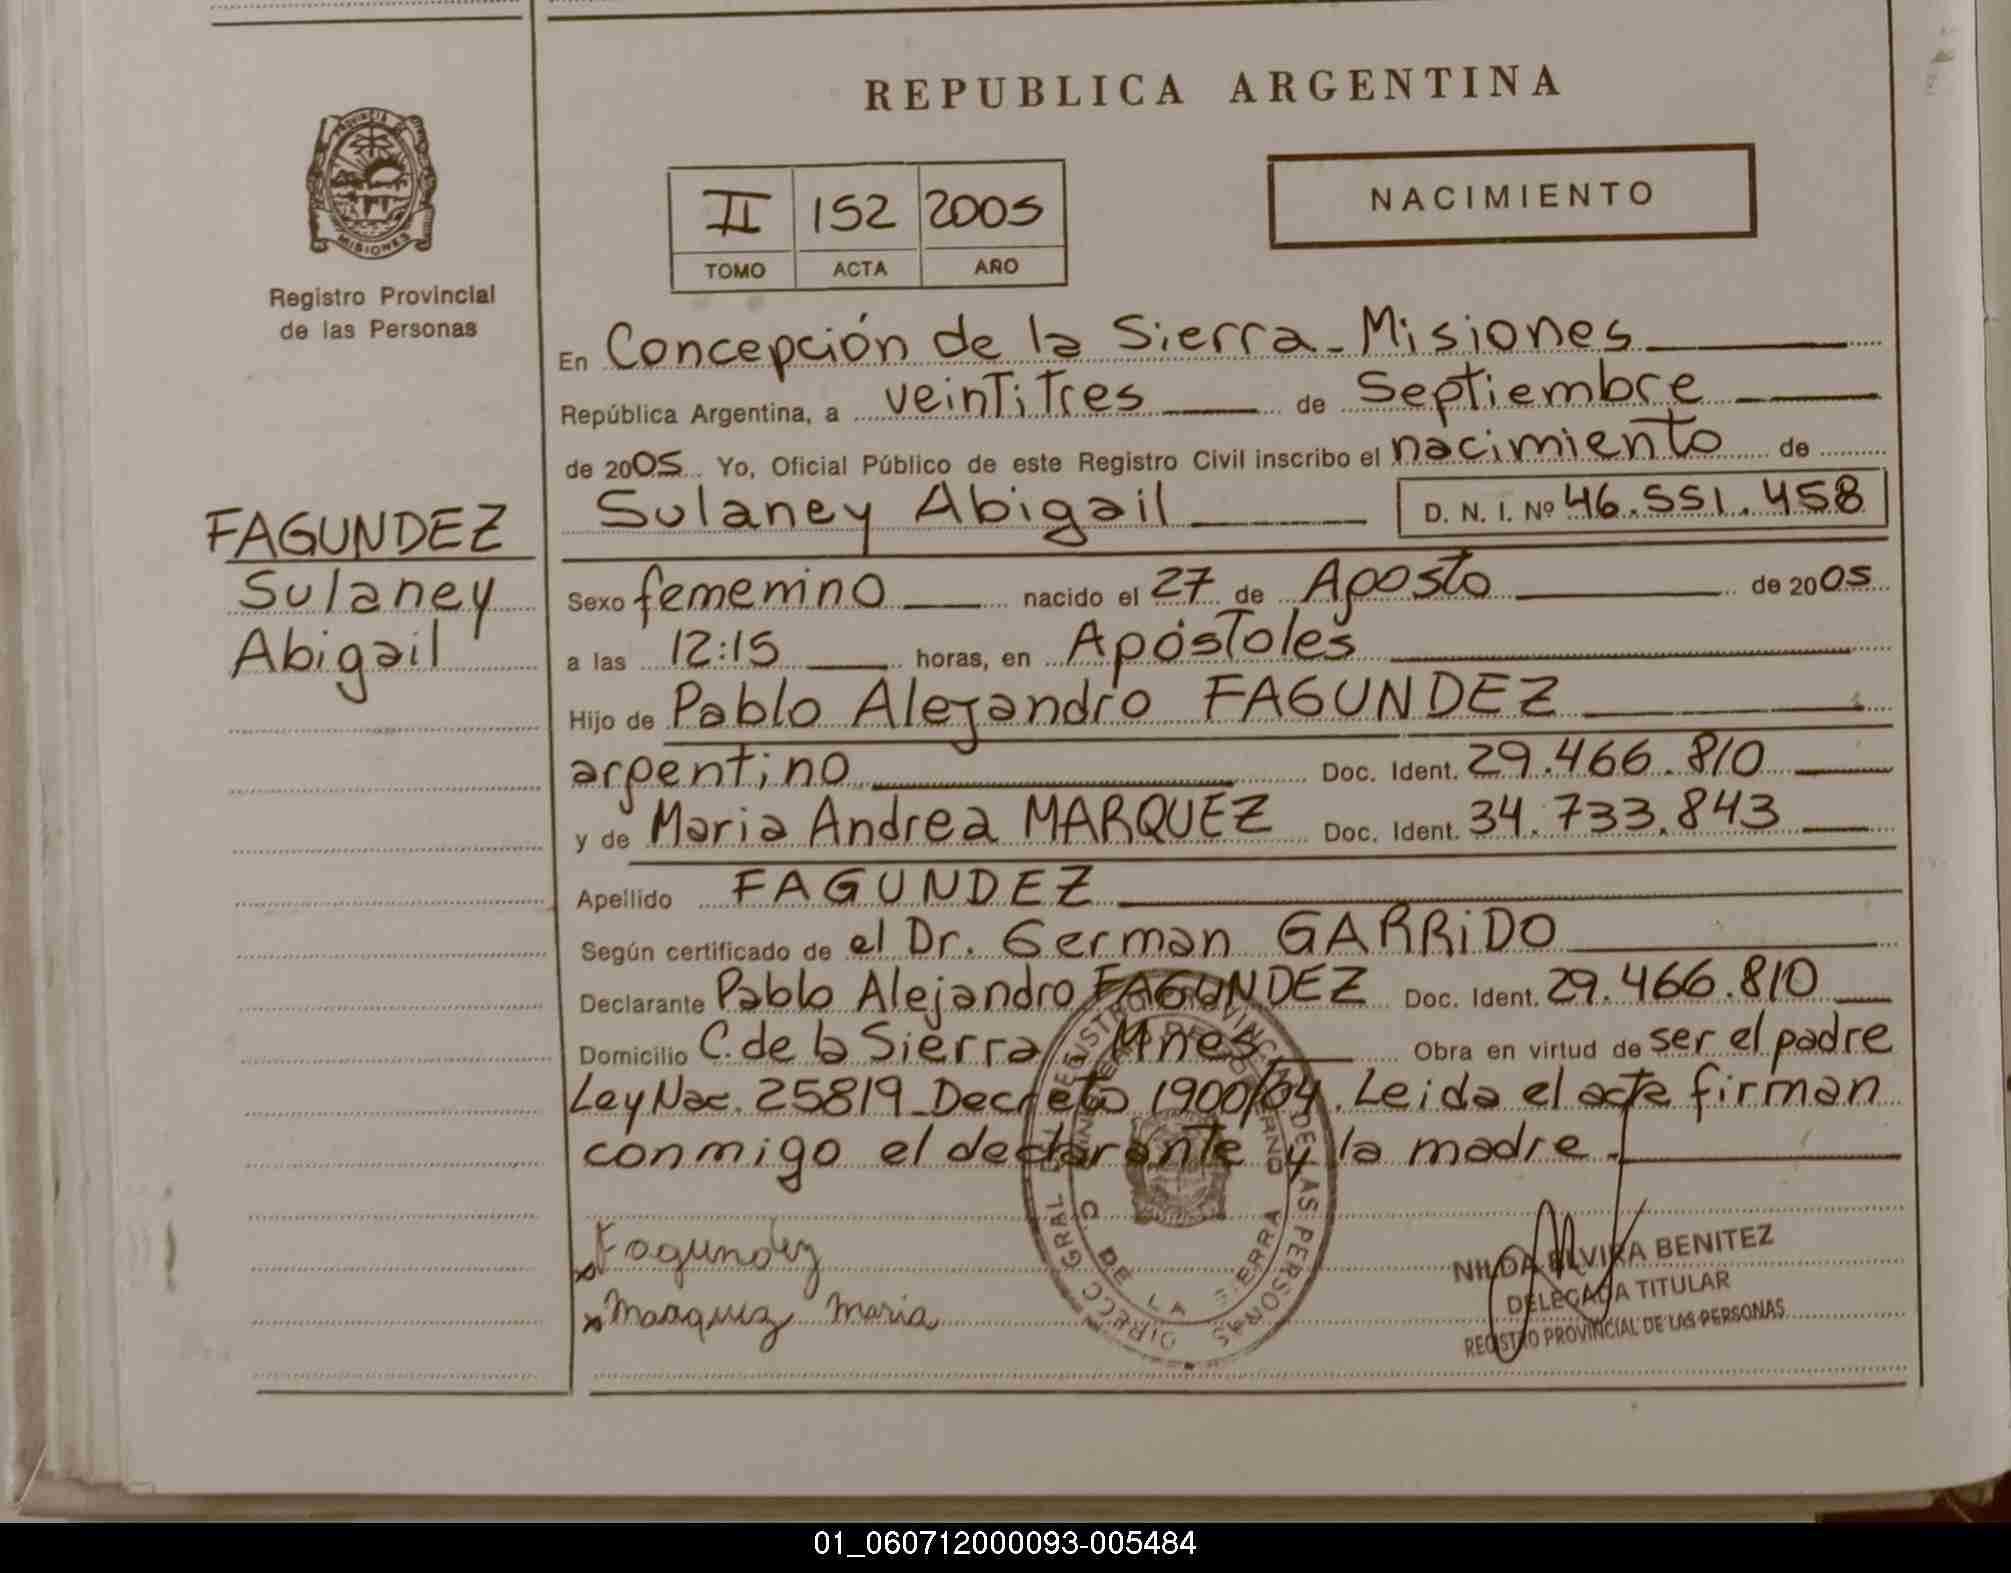 REPUBLICA ARGENTINA
PROVINCIA DE
MISIONES
Registro Provincial
de las Personas
II 152 2005
TOMO ACTA AÑO
NACIMIENTO
En Concepción de la Sierra - Misiones
República Argentina, a veintitres de Septiembre
de 2005 Yo, Oficial Público de este Registro Civil inscribo el nacimiento de
Sulaney Abigail D. N. I. Nº 46.551.458
FAGUNDEZ
Sulaney
Abigail
Sexo femenino nacido el 27 de Agosto de 2005
a las 12:15 horas, en Apóstoles
Hijo de Pablo Alejandro FAGUNDEZ
argentino Doc. Ident. 29.466.810
y de Maria Andrea MARQUEZ Doc. Ident. 34.733.843
Apellido FAGUNDEZ
Según certificado de el Dr. German GARRIDO
Declarante Pablo Alejandro FAGUNDEZ Doc. Ident. 29.466.810
Domicilio C. de la Sierra - Mnes Obra en virtud de ser el padre
Ley Nac. 25819 - Decreto 1900/04. Leida el acta firman
conmigo el declarante y la madre.
Fagundez
x Marquez Maria
DIRECC GRAL DEL REGISTRO PROVINCIAL DE LAS PERSONAS
C DE LA SIERRA
NILDA ELVIRA BENITEZ
DELEGADA TITULAR
REGISTRO PROVINCIAL DE LAS PERSONAS
01_060712000093-005484